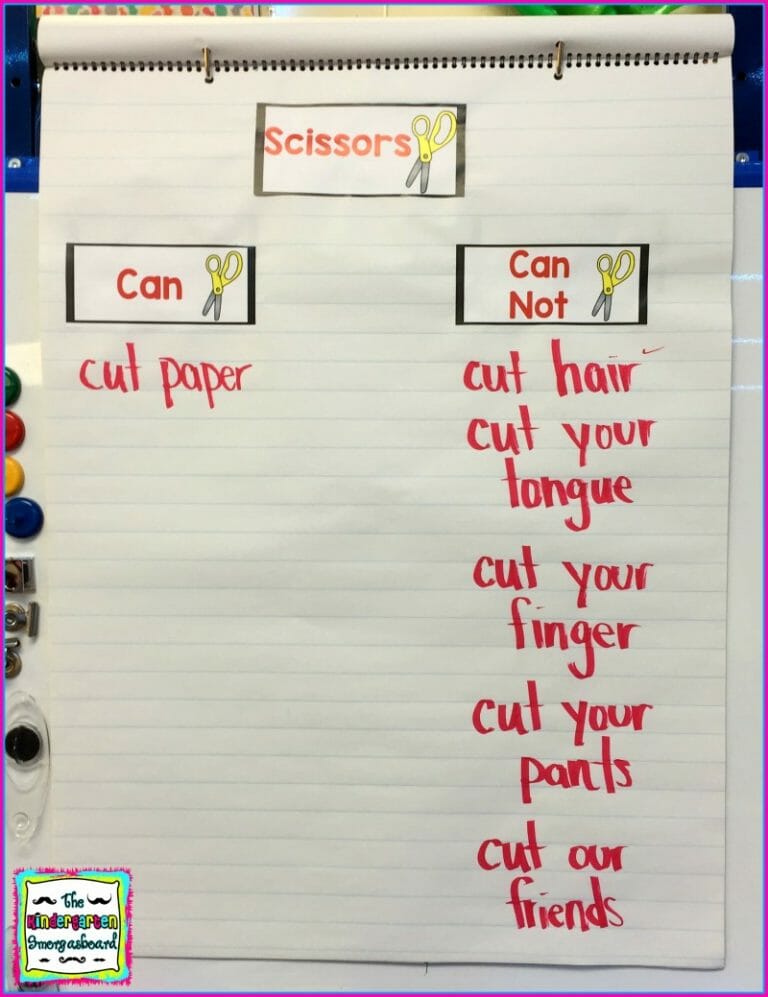 Scissors
Can
cut paper
Can
Not
cut hair
cut your
tongue
cut your
finger
cut your
pants
cut our
friends
The
Kindergarten
Smorgasboard